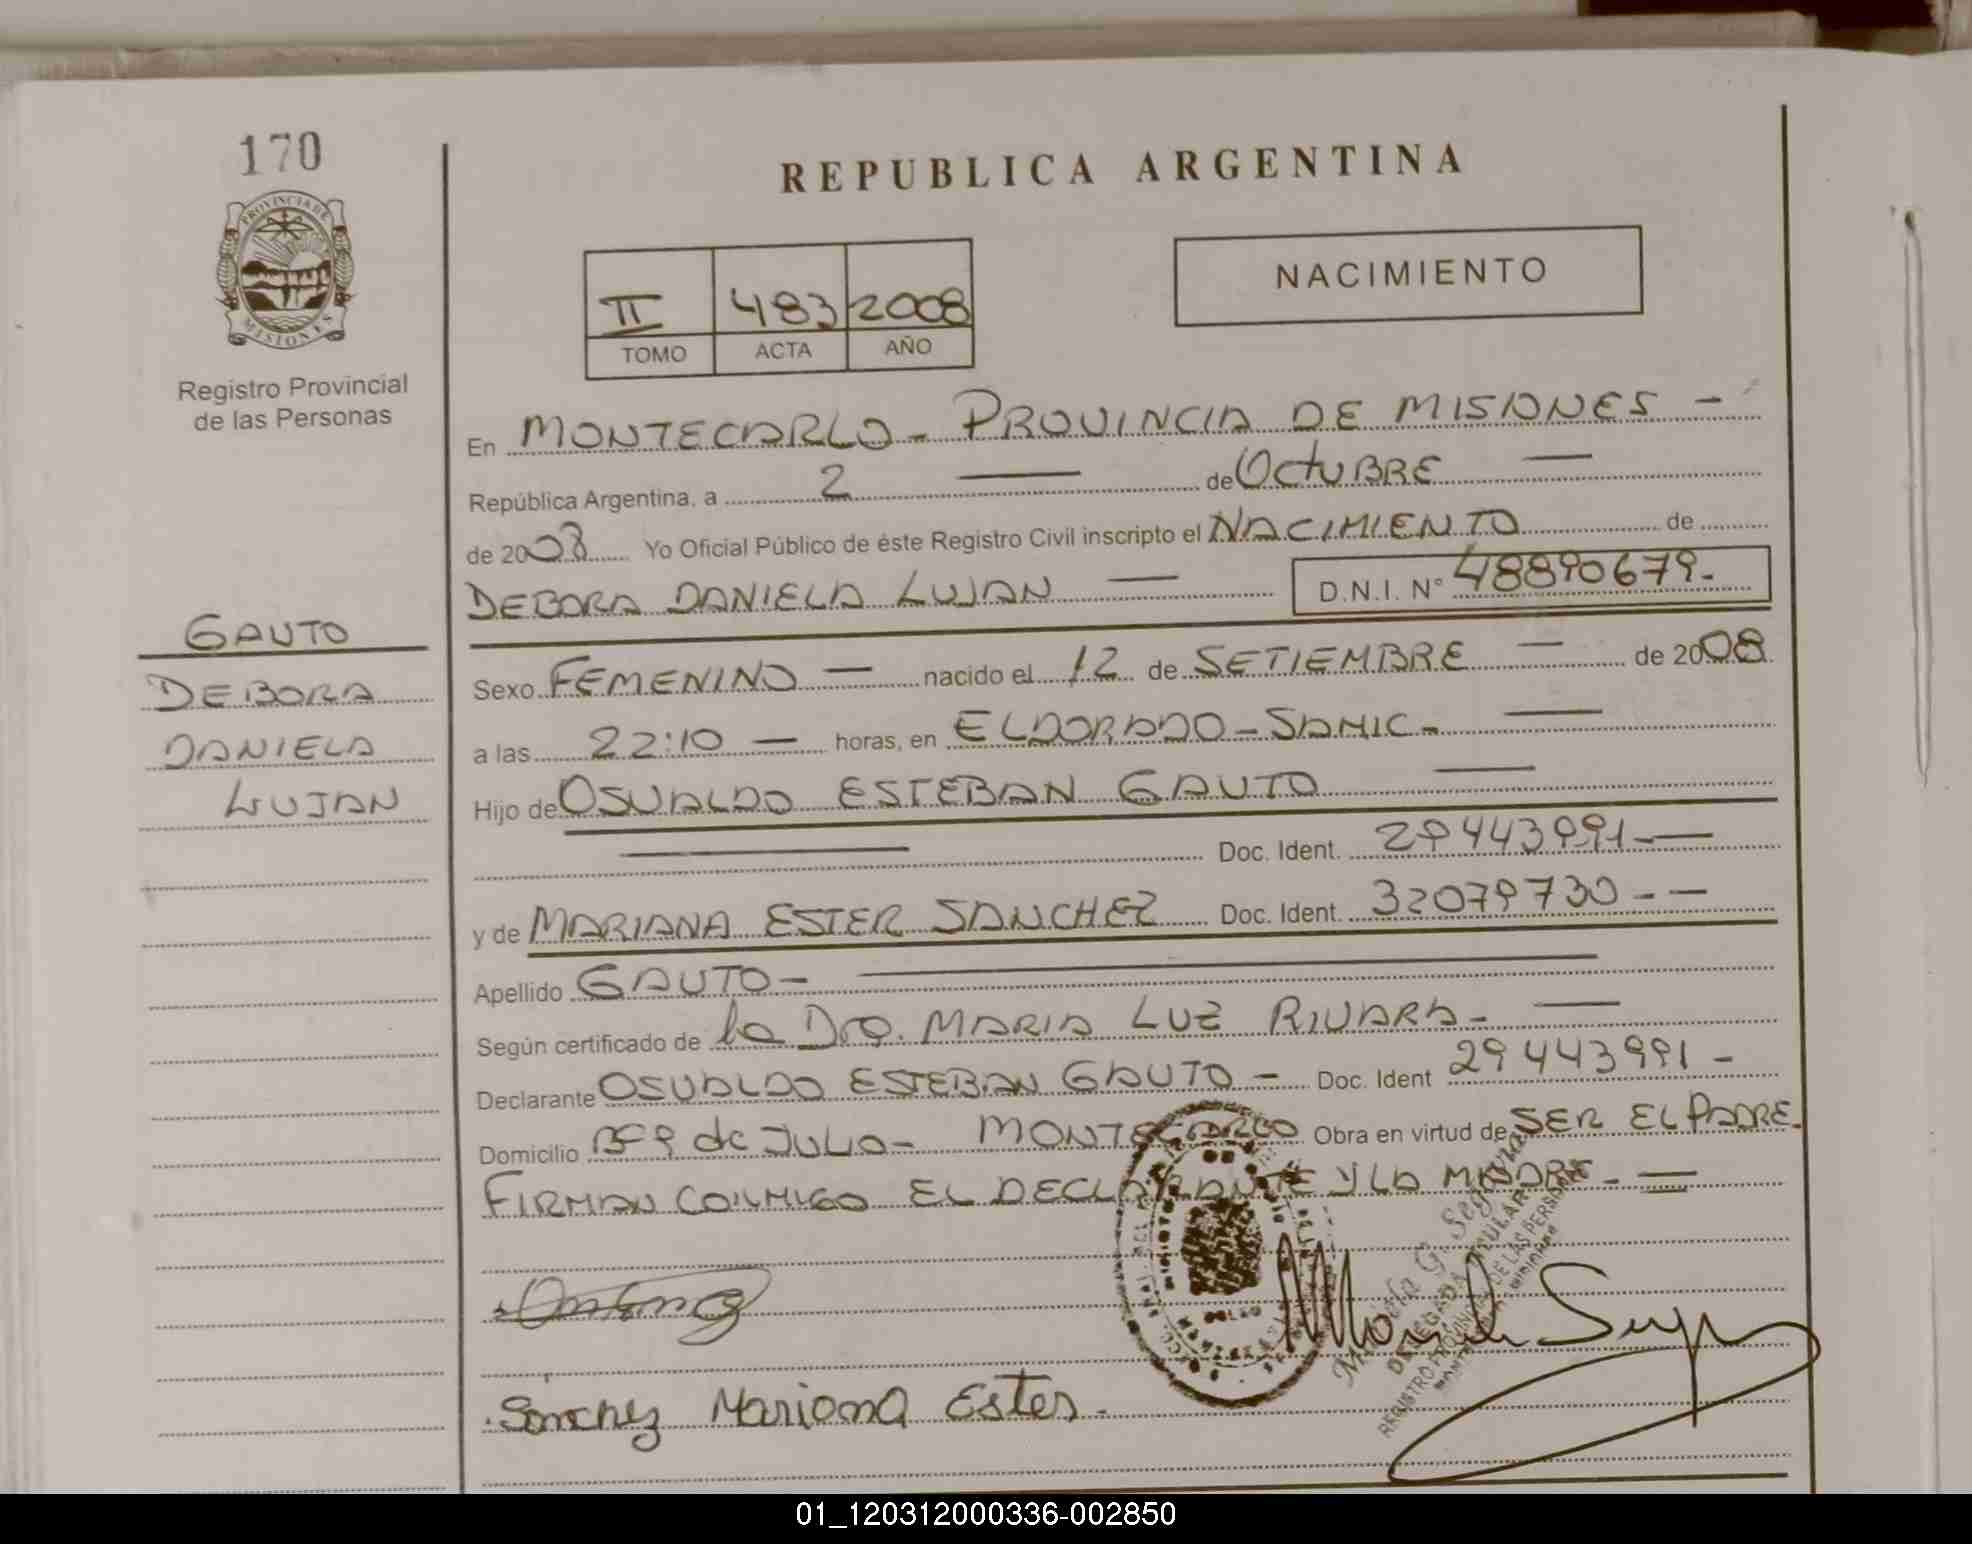 170
REPUBLICA ARGENTINA
PROVINCIA DE
MISIONES
Registro Provincial
de las Personas
NACIMIENTO
II 483 2008
TOMO ACTA AÑO
En MONTECARLO - PROVINCIA DE MISIONES -
República Argentina, a 2 de OCTUBRE
de 2008 Yo Oficial Público de éste Registro Civil inscripto el NACIMIENTO de
DEBORA DANIELA LUJAN — D.N.I. N° 48890679.-
GAUTO
DEBORA
DANIELA
LUJAN
Sexo FEMENINO — nacido el 12 de SETIEMBRE — de 2008
a las 22:10 — horas, en ELDORADO - SAMIC - —
Hijo de OSVALDO ESTEBAN GAUTO —
Doc. Ident. 29443991 -
y de MARIANA ESTER SANCHEZ Doc. Ident. 32079730 - -
Apellido GAUTO -
Según certificado de la Dra. MARIA LUZ RIVARA - —
Declarante OSVALDO ESTEBAN GAUTO - Doc. Ident 29443991 -
Domicilio Bº 9 de JULIO - MONTECARLO Obra en virtud de SER EL PADRE.
FIRMAN CONMIGO EL DECLARANTE Y LA MADRE - =
DELEGADA TITULAR
REGISTRO PROVINCIAL DE LAS PERSONAS
Sánchez Mariana Ester.
01_120312000336-002850